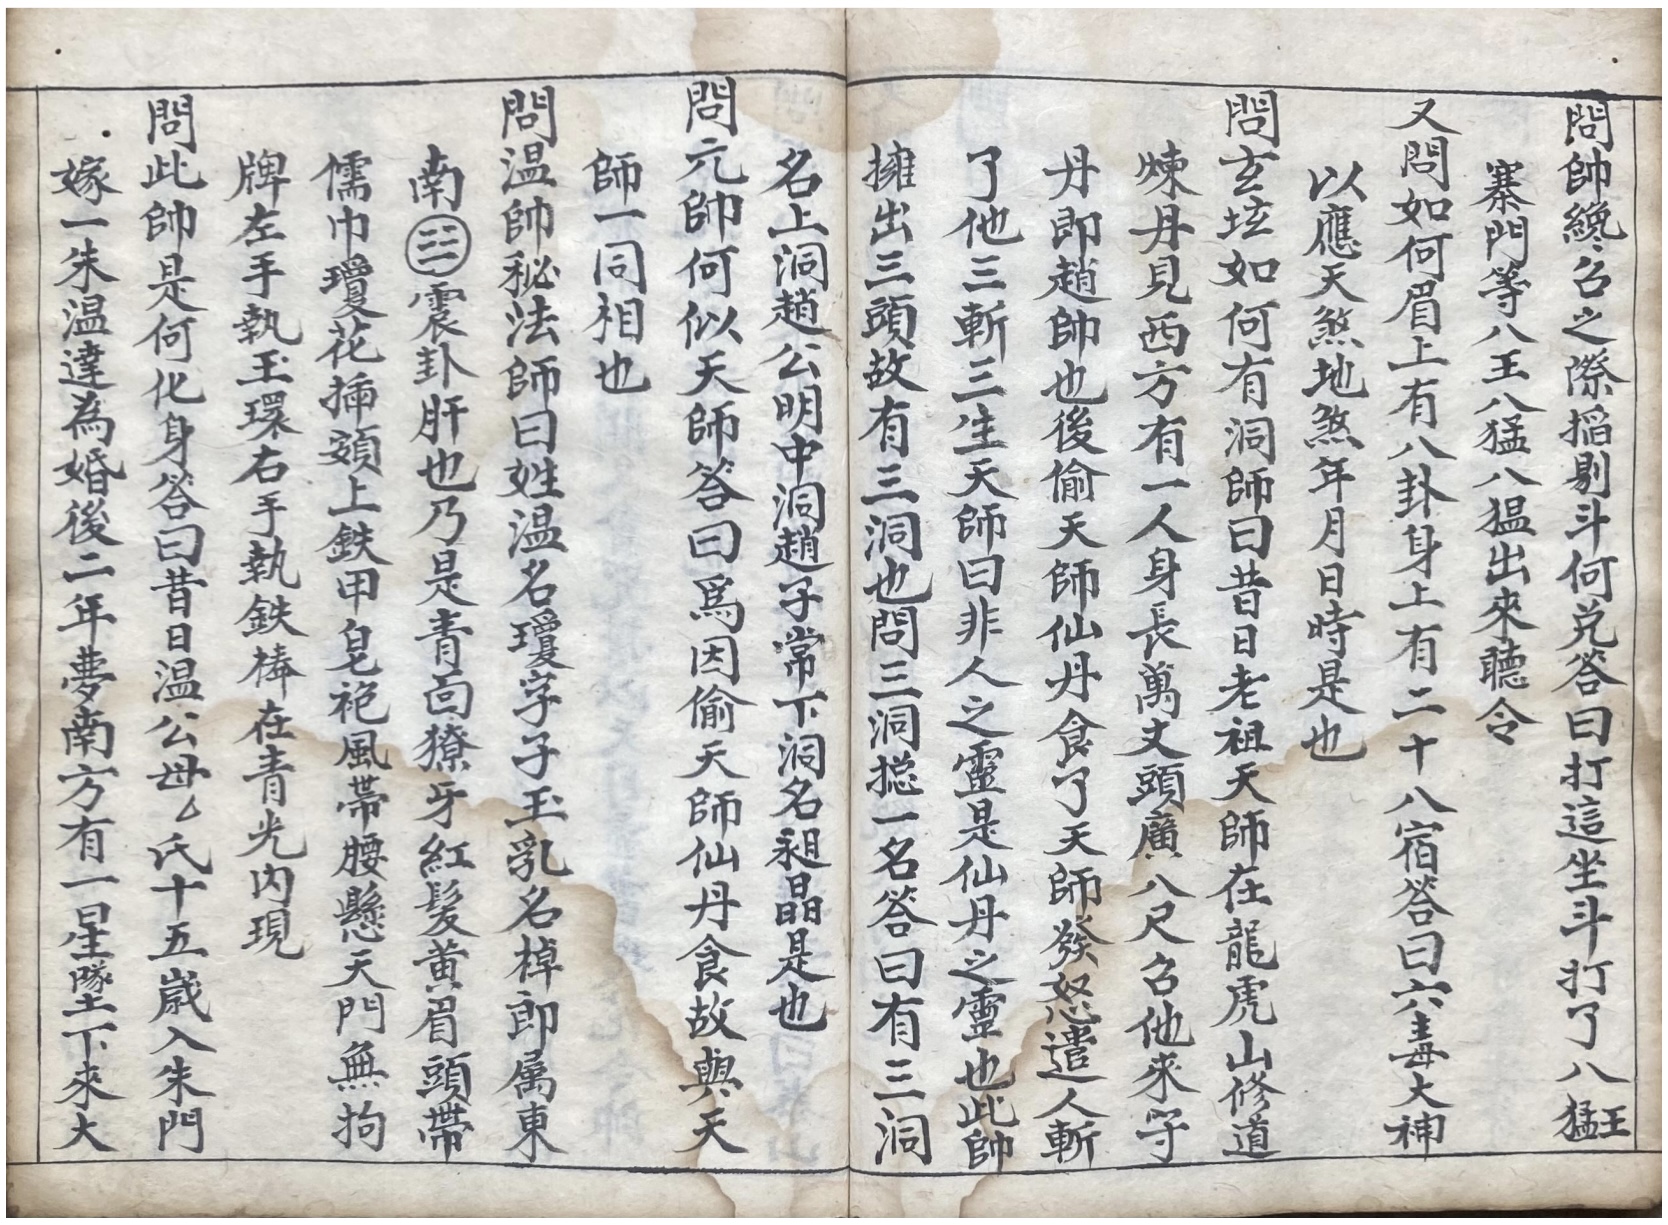 問帥纔召之際搯剔斗何兑答曰打這坐斗打了八王猛
寨門等八王八猛八猛出來聽令
又問如何眉上有八卦身上有二十八宿答曰六毒大神
以應天煞地煞年月日時是也
問玄坛如何有洞師曰昔日老祖天師在龍虎山修道
煉丹見西方有一人身長萬丈頭廣八尺召他來守
丹即趙帥也後偷天師仙丹食了天師發怒遣人斬
了他三斬三生天師曰非人之靈是仙丹之靈也此帥
擁出三頭故有三洞也問三洞摠一名答曰有三洞
名上洞趙公明中洞趙子常下洞名昶晶是也
問元帥何似天師答曰爲因偷天師仙丹食故與天
師一同相也
問温帥秘法師曰姓温名瓊字子玉乳名棹即属東
南☳震卦肝也乃是青面獠牙紅髮黃眉頭帶
儒巾瓊花插額上鉄甲皂袍風帶腰懸天門無拘
牌左手執玉環右手執鉄棒在青光内現
問此帥是何化身答曰昔日温公母氏十五歲入朱門
嫁一朱温達為婚後二年夢南方有一星墜下來大